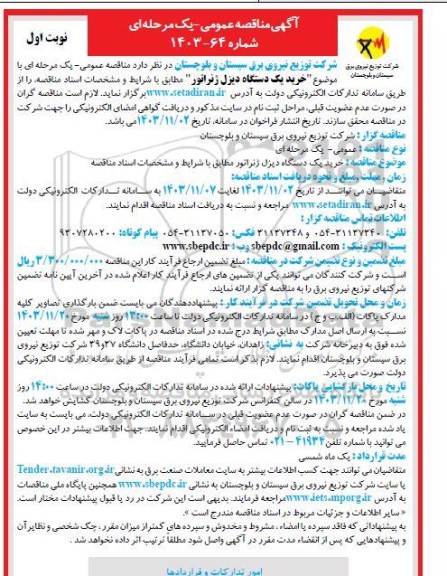 آگهی مناقصه عمومی-یک مرحله‌ای
شماره ۶۴-۱۴۰۳
نوبت اول
شرکت توزیع نیروی برق
سیستان و بلوچستان
شرکت توزیع نیروی برق سیستان و بلوچستان در نظر دارد مناقصه عمومی- یک مرحله ای با
موضوع "خرید یک دستگاه دیزل ژنراتور" مطابق با شرایط و مشخصات اسناد مناقصه، را از
طریق سامانه تدارکات الکترونیکی دولت به آدرس www.setadiran.ir برگزار نماید. لازم است مناقصه گران
در صورت عدم عضویت قبلی، مراحل ثبت نام در سایت مذکور و دریافت گواهی امضای الکترونیکی را جهت شرکت
در مناقصه محقق سازند. تاریخ انتشار فراخوان در سامانه، تاریخ ۱۴۰۳/۱۱/۰۲ می باشد.
مناقصه گزار: شرکت توزیع نیروی برق سیستان و بلوچستان
نوع مناقصه: عمومی- یک مرحله ای
موضوع مناقصه: خرید یک دستگاه دیزل ژنراتور مطابق با شرایط و مشخصات اسناد مناقصه
زمان، مهلت، مبلغ و نحوه دریافت اسناد مناقصه:
متقاضیان می توانند از تاریخ ۱۴۰۳/۱۱/۰۲ لغایت ۱۴۰۳/۱۱/۰۷ به سامانه تدارکات الکترونیکی دولت
به آدرس www.setadiran.ir مراجعه و نسبت به دریافت اسناد مناقصه اقدام نمایند.
اطلاعات تماس مناقصه گزار:
تلفن: ۳۱۱۳۷۲۴۰-۰۵۴ و ۳۱۱۳۷۲۴۸ فکس: ۳۱۱۳۷۰۵۰-۰۵۴ پیام کوتاه: ۹۳۰۷۲۸۰۲۰۰
پست الکترونیک: sbepdc@gmail.com وب: www.sbepdc.ir
مبلغ تضمین و نوع تضمین شرکت در مناقصه: مبلغ تضمین ارجاع فرآیند کار این مناقصه ۳/۳۰۰/۰۰۰/۰۰۰ ریال
است و شرکت کنندگان می توانند یکی از تضمین های ارجاع فرآیند کار اعلام شده در آخرین آیین نامه تضمین
شرکتهای توزیع نیروی برق را به مناقصه گزار ارائه نمایند.
زمان و محل تحویل تضمین شرکت در فرآیند کار: پیشنهاددهندگان می بایست ضمن بارگذاری تصاویر کلیه
مدارک پاکات (الف، ب و ج) در سامانه تدارکات الکترونیکی دولت تا ساعت ۱۳:۰۰ روز شنبه مورخ ۱۴۰۳/۱۱/۲۰
نسبت به ارسال اصل مدارک مطابق شرایط درج شده در اسناد مناقصه در پاکات لاک و مهر شده تا مهلت تعیین
شده فوق به دبیرخانه شرکت به نشانی: زاهدان، خیابان دانشگاه، حدفاصل دانشگاه ۳۷ و ۳۹ شرکت توزیع نیروی
برق سیستان و بلوچستان اقدام نمایند. لازم بذکر است تمامی فرآیند مناقصه از طریق سامانه تدارکات الکترونیکی
دولت صورت می پذیرد.
تاریخ و محل بازگشایی پاکات: پیشنهادات ارائه شده در سامانه تدارکات الکترونیکی دولت در ساعت ۱۴:۰۰ روز
شنبه مورخ ۱۴۰۳/۱۱/۲۰ در سالن کنفرانس شرکت توزیع نیروی برق سیستان و بلوچستان گشایش خواهد شد.
در ضمن مناقصه گران در صورت عدم عضویت قبلی در سامانه تدارکات الکترونیکی دولت، می بایست به سایت
یاد شده مراجعه و نسبت به ثبت نام و دریافت امضاء الکترونیکی اقدام نمایند. جهت اطلاعات بیشتر در این خصوص
می توانید با شماره تلفن ۴۱۹۳۴-۰۲۱ تماس حاصل فرمایید.
مدت قرارداد: یک ماه شمسی
متقاضیان می توانند جهت کسب اطلاعات بیشتر به سایت معاملات صنعت برق به نشانی Tender.tavanir.org.ir
یا سایت شرکت توزیع نیروی برق سیستان و بلوچستان به نشانی www.sbepdc.ir همچنین پایگاه ملی مناقصات
به آدرس www.iets.mporg.ir مراجعه فرمایند. بدیهی است این شرکت در رد یا قبول پیشنهادات مختار است.
« سایر اطلاعات و جزئیات مربوط در اسناد مناقصه مندرج است ».
به پیشنهاداتی که فاقد سپرده یا امضاء، مشروط و مخدوش و سپرده های کمتر از میزان مقرر، چک شخصی و نظایر آن
و پیشنهادهایی که پس از انقضاء مدت مقرر در آگهی واصل شود مطلقا ترتیب اثر داده نخواهد شد.
امور تدارکات و قراردادها